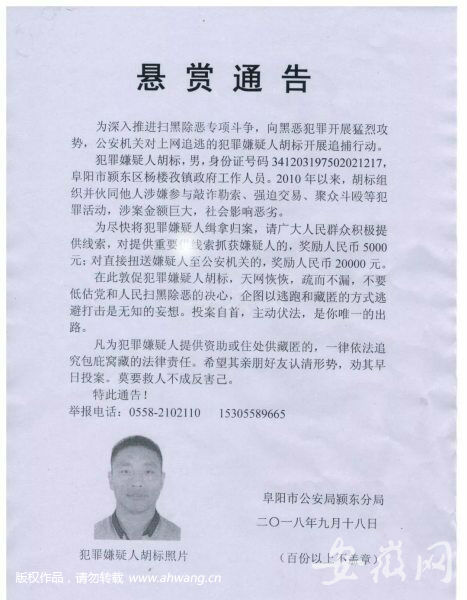 悬赏通告
为深入推进扫黑除恶专项斗争，向黑恶犯罪开展猛烈攻
势，公安机关对上网追逃的犯罪嫌疑人胡标开展追捕行动。
犯罪嫌疑人胡标，男，身份证号码 341203197502021217，
阜阳市颍东区杨楼孜镇政府工作人员。2010 年以来，胡标组
织并伙同他人涉嫌参与敲诈勒索、强迫交易、聚众斗殴等犯
罪活动，涉案金额巨大，社会影响恶劣。
为尽快将犯罪嫌疑人缉拿归案，请广大人民群众积极提
供线索，对提供重要线索抓获嫌疑人的，奖励人民币 5000
元；对直接扭送嫌疑人至公安机关的，奖励人民币 20000 元。
在此敦促犯罪嫌疑人胡标，天网恢恢，疏而不漏，不要
低估党和人民扫黑除恶的决心，企图以逃跑和藏匿的方式逃
避打击是无知的妄想。投案自首，主动伏法，是你唯一的出
路。
凡为犯罪嫌疑人提供资助或住处供藏匿的，一律依法追
究包庇窝藏的法律责任。希望其亲朋好友认清形势，劝其早
日投案。莫要救人不成反害己。
特此通告！
举报电话：0558-2102110 15305589665
阜阳市公安局颍东分局
二〇一八年九月十八日
犯罪嫌疑人胡标照片
（百份以上不盖章）
安徽网
版权作品，请勿转载 www.ahwang.cn